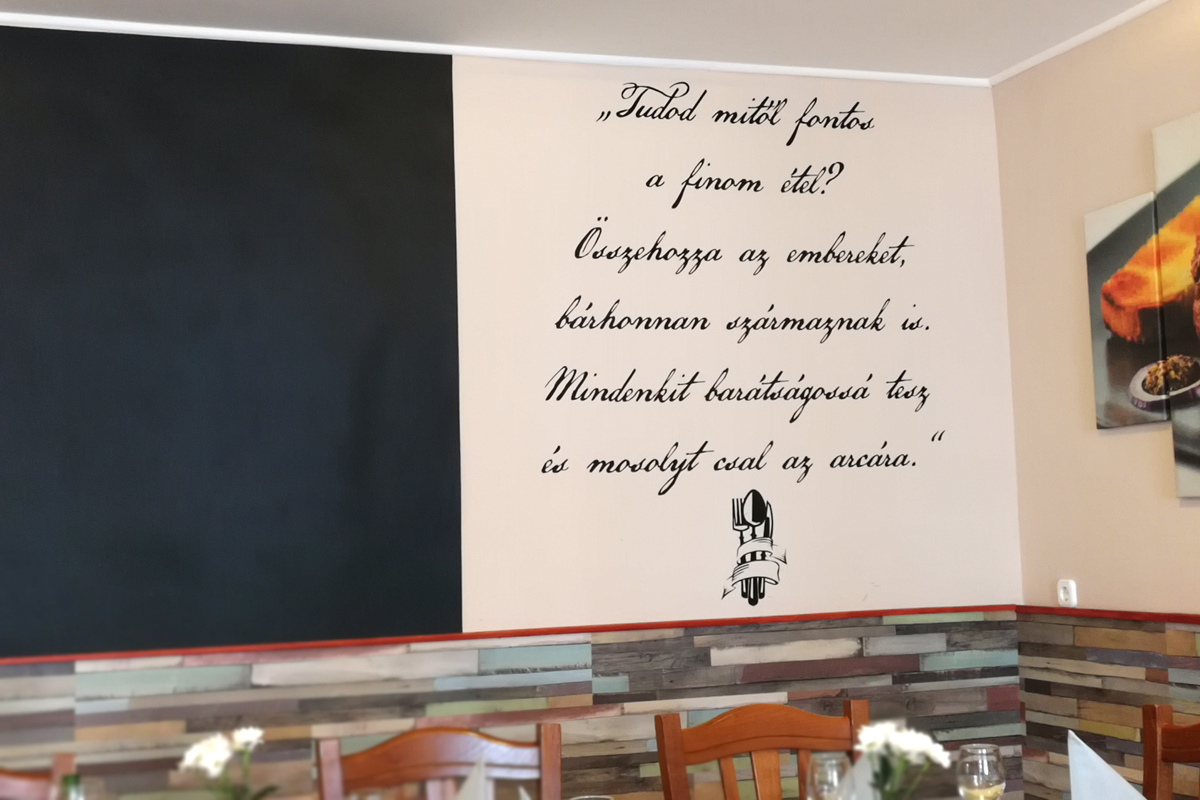 „Tudod mitől fontos
a finom étel?
Összehozza az embereket,
bárhonnan származnak is.
Mindenkit barátságossá tesz
és mosolyt csal az arcára.“